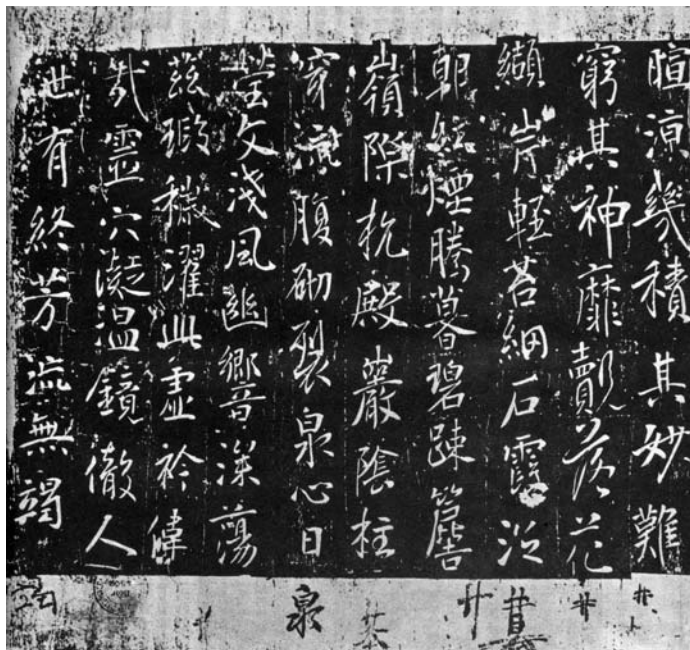 暄涼幾積其妙難
窮其神靡賾落花
纈岸輕苔網石霞泛
朝紅煙騰暮碧踈簷
嶺際杭殿巖陰柱
穿流腹砌裂泉心日
瑩文淺風幽響深蕩
茲瑕穢濯此虛衿偉
哉靈穴凝温鏡徹人
世有終芳流無竭
泉